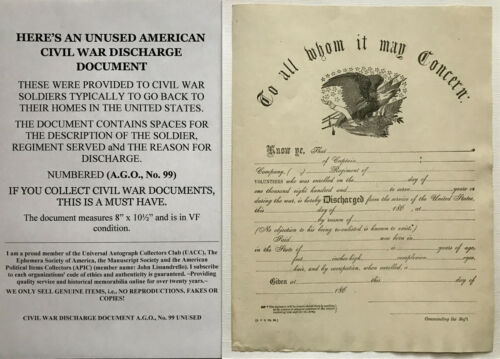 HERE'S AN UNUSED AMERICAN
CIVIL WAR DISCHARGE
DOCUMENT
THESE WERE PROVIDED TO CIVIL WAR
SOLDIERS TYPICALLY TO GO BACK TO
THEIR HOMES IN THE UNITED STATES.
THE DOCUMENT CONTAINS SPACES FOR
THE DESCRIPTION OF THE SOLDIER,
REGIMENT SERVED aNd THE REASON FOR
DISCHARGE.
NUMBERED (A.G.O., No. 99)
IF YOU COLLECT CIVIL WAR DOCUMENTS,
THIS IS A MUST HAVE.
The document measures 8" x 10½" and is in VF
condition.
I am a proud member of the Universal Autograph Collectors Club (UACC), The
Ephemera Society of America, the Manuscript Society and the American
Political Items Collectors (APIC) (member name: John Lissandrello). I subscribe
to each organizations' code of ethics and authenticity is guaranteed. ~Providing
quality service and historical memorabilia for over twenty years.~
WE ONLY SELL GENUINE ITEMS, i.e., NO REPRODUCTIONS, FAKES OR
COPIES!
CIVIL WAR DISCHARGE DOCUMENT A.G.O., No. 99 UNUSED
To all whom it may Concern:
Know ye, That
of Captain
Company, ( ) Regiment of
VOLUNTEERS who was enrolled on the day of
one thousand eight hundred and to serve years or
during the war, is hereby Discharged from the service of the United States,
this day of 186 , at
by reason of
(No objection to his being re-enlisted is known to exist.)
Said was born in
in the State of is years of age,
feet inches high, complexion, eyes,
hair, and by occupation, when enrolled, a
Given at this day of
186
Commanding the Reg't.